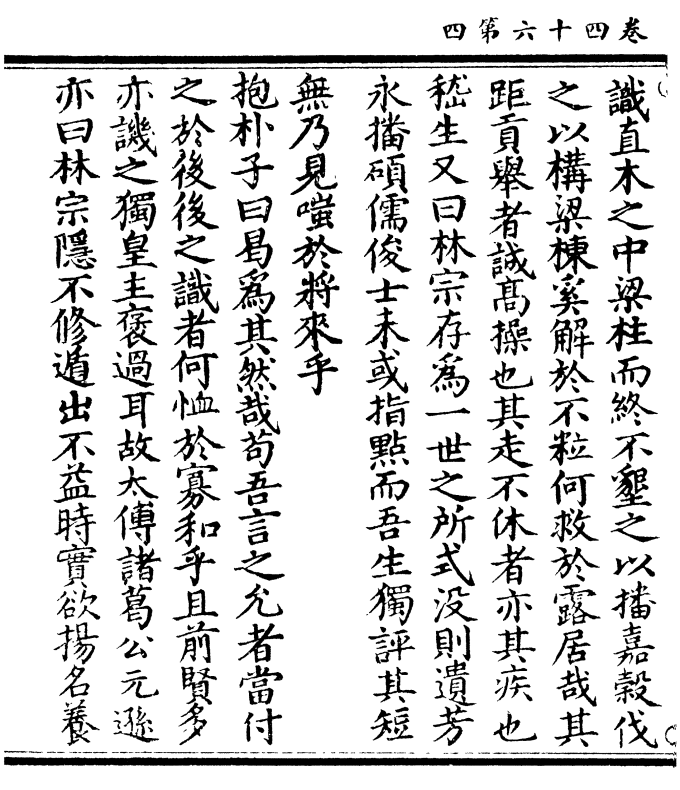 卷四十六第四
識直木之中梁柱而終不墾之以播嘉榖伐
之以構梁棟奚解於不粒何救於露居哉其
距貢舉者誠髙操也其走不休者亦其疾也
嵇生又曰林宗存爲一世之所式没則遺芳
永播碩儒俊士未或指點而吾生獨評其短
無乃見嗤於將來乎
抱朴子曰曷爲其然哉苟吾言之允者當付
之於後後之識者何恤於寡和乎且前賢多
亦譏之獨皇主褒過耳故太傅諸葛公元遜
亦曰林宗隱不修遁出不益時實欲揚名養